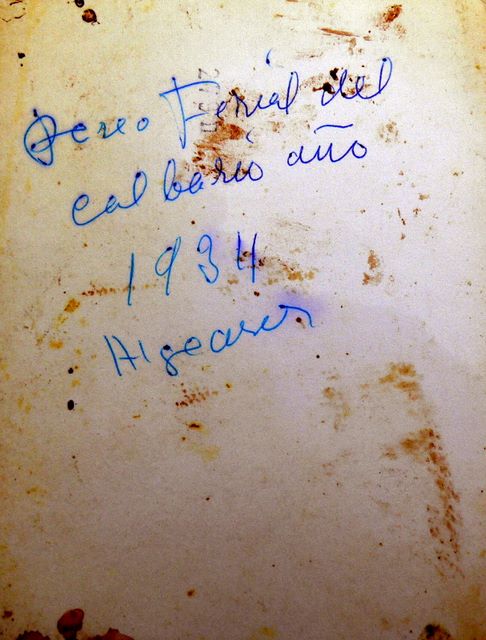 Aereo Ferial del
calbario año
1934
Algeares